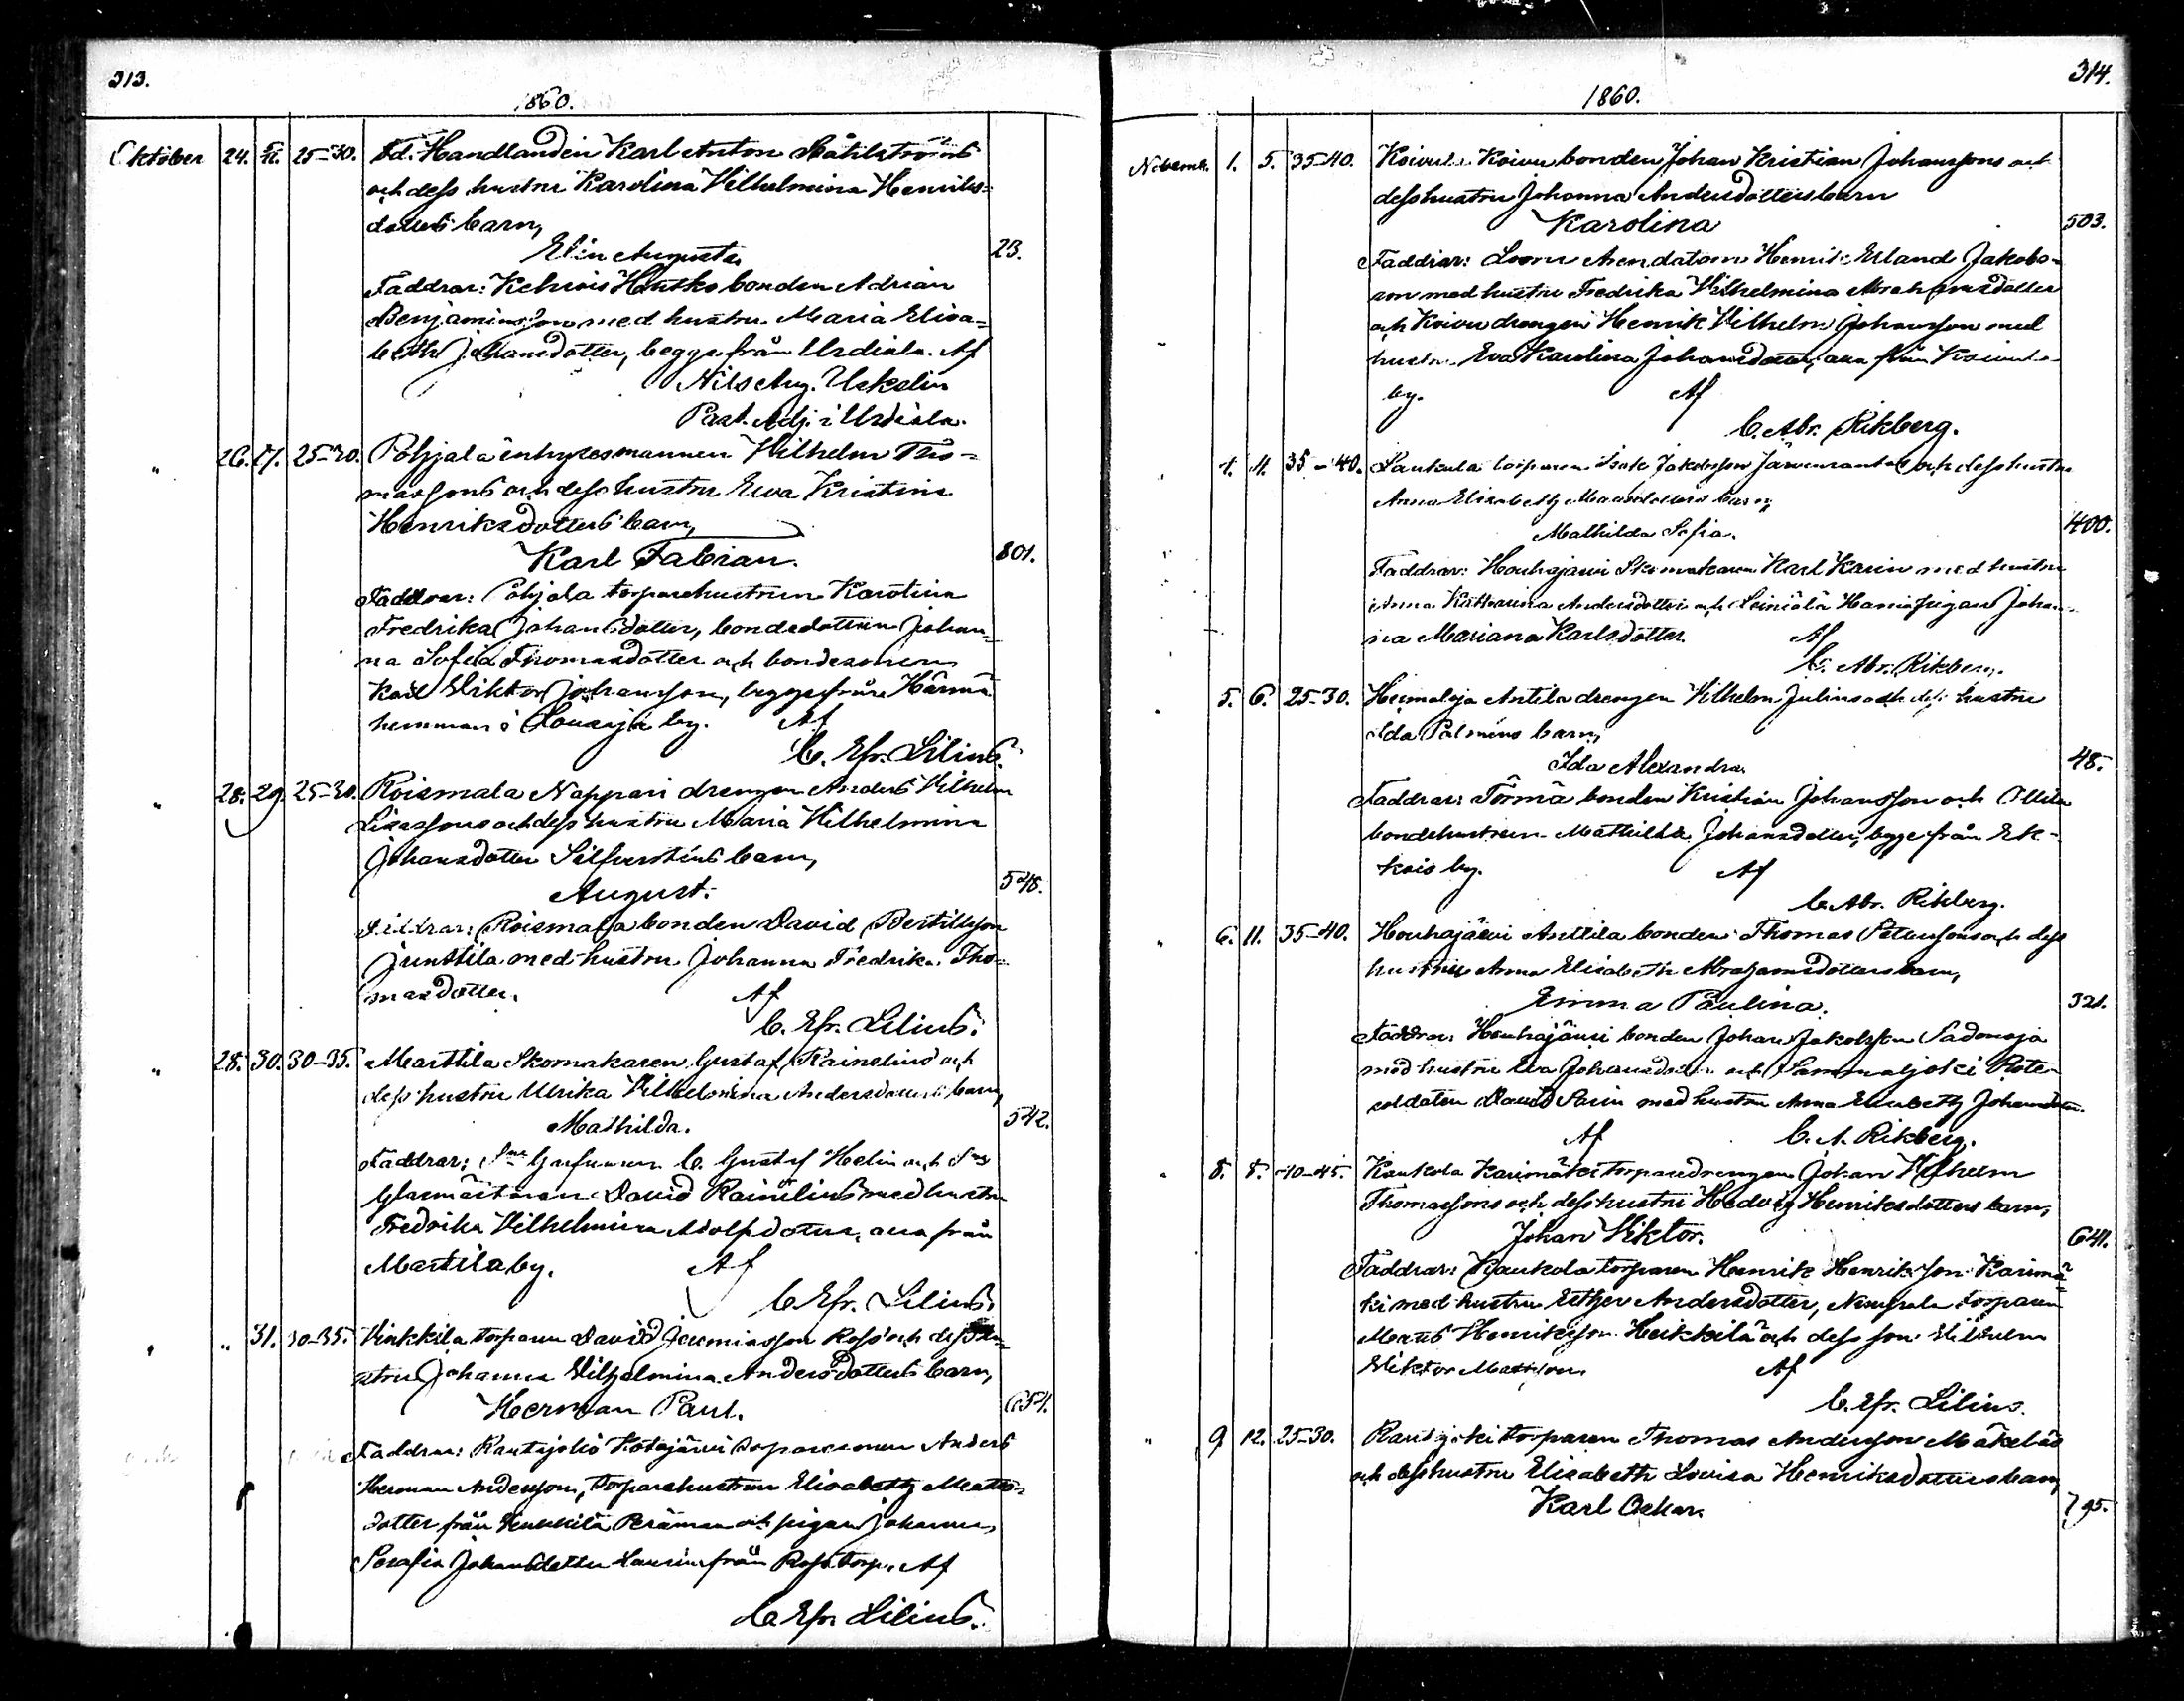 313.
1860.
Oktober 24. 25-30. Fd. Handlanden Karl Anton Ståhlströms
och dess hustru Karolina Vilhelmina Henriks=
dotters barn,
Elin Augusta 23.
Faddrar: Kehrois Hautko bonden Adrian
Benjaminsson med hustru Maria Elisa=
beth Johansdotter, begge från Urdiala. Af
Nils Aug.
Past. Adj. i Urdiala.
" 26. 27. 25-30. Pohjala inhysesmannen Vilhelm Tho=
massons och dess hustru Eva Kristina
Henriksdotters barn,
Karl Fabian. 801.
Faddrar: Pohjala torparehustrun Karolina
Fredrika Johansdotter, bondedottern Johan=
na Sofia Thomasdotter och bondesonen
Karl Viktor Johansson, begge från Härmä
hemman i by. Af
C. Efr. Lilius.
" 28. 29. 25-30. Roismala Nappari drengen Anders Vilhelm
och dess hustru Maria Vilhelmina
Johansdotter barn,
August. 548.
Faddrar: Roismala bonden David Bertilsson
Junttila med hustru Johanna Fredrika Tho=
masdotter. Af
C. Efr. Lilius.
" 28. 30. 30-35. Marttila Skomakaren Gustaf Rainelius och
dess hustru Ulrika Vilhelmina Andersdotters barn,
Mathilda. 542.
Faddrar: C. Gustaf Helin och
Glasmästaren David Rainelius med hustru
Fredrika Vilhelmina Adolfsdotter, alla från
Marttila by. Af
C. Efr. Lilius.
" " 31. 30-35. Kinkkila torparen David Jeremiasson Rosö och dess
hustru Johanna Vilhelmina Andersdotters barn,
Herman Paul. 654.
Faddrar: Rautajokis torparesonen Anders
Herman Andersson, torparehustrun Elisabeth Matts=
dotter från och pigan Johanna
Serafia Johansdotter från torp. Af
C. Efr. Lilius.
314.
1860.
Novemb. 1. 5. 35-40. Koivula Koivu bonden Johan Kristian Johanssons och
dess hustru Johanna Andersdotters barn
Karolina 503.
Faddrar: Arendatorn Henrik Erland Jakobs=
son med hustru Fredrika Vilhelmina Abrahamsdotter
och Koivu drengen Henrik Vilhelm Johansson med
hustru Eva Karolina Johansdotter, alla från Koivula
by. Af
C. Abr. Rikberg.
1. 11. 35-40. torparen Isak Jakobsson och dess hustru
Anna Elisabeth barn,
Mathilda Sofia. 400.
Faddrar: Houhajärvi Skomakaren Karl Karin med hustru
Anna Katharina Andersdotter och pigan Johan=
na Mariana Karlsdotter. Af
C. Abr. Rikberg.
5. 6. 25-30. Heimaloja Antila drengen Vilhelm Julius och dess hustru
Ida Palméns barn,
Ida Alexandra 48.
Faddrar: Törmä bonden Kristian Johansson och Ollila
bondehustrun Mathilda Johansdotter, begge från Ek=
kois by. Af
C. Abr. Rikberg.
" 6. 11. 35-40. Houhajärvi Anttila bonden Thomas Petterssons och dess
hustru Anna Elisabeth Abrahamsdotters barn,
Emma Paulina. 321.
Faddrar: Houhajärvi bonden Johan Jakobsson Sadonoja
med hustru Eva Johansdotter och Sammaljoki Rote=
soldaten David med hustru Anna Elisabeth Johansdotter.
Af C. A. Rikberg.
8. 8. 40-45. Kaukola Karimäki torparedrengen Johan Vilhelm
Thomassons och dess hustru Hedvig Henriksdotters barn,
Johan Viktor. 641.
Faddrar: Kaukola torparen Henrik Henriksson Karimä=
ki med hustru Esther Andersdotter, torparen
Matts Henriksson Heikkilä och dess son Vilhelm
Viktor Mattsson Af
C. Efr. Lilius.
" 9 12. 25-30. Rautajoki torparen Thomas Andersson Mäkeläs
och dess hustru Elisabeth Lovisa Henriksdotters barn,
Karl Oskar. 795.